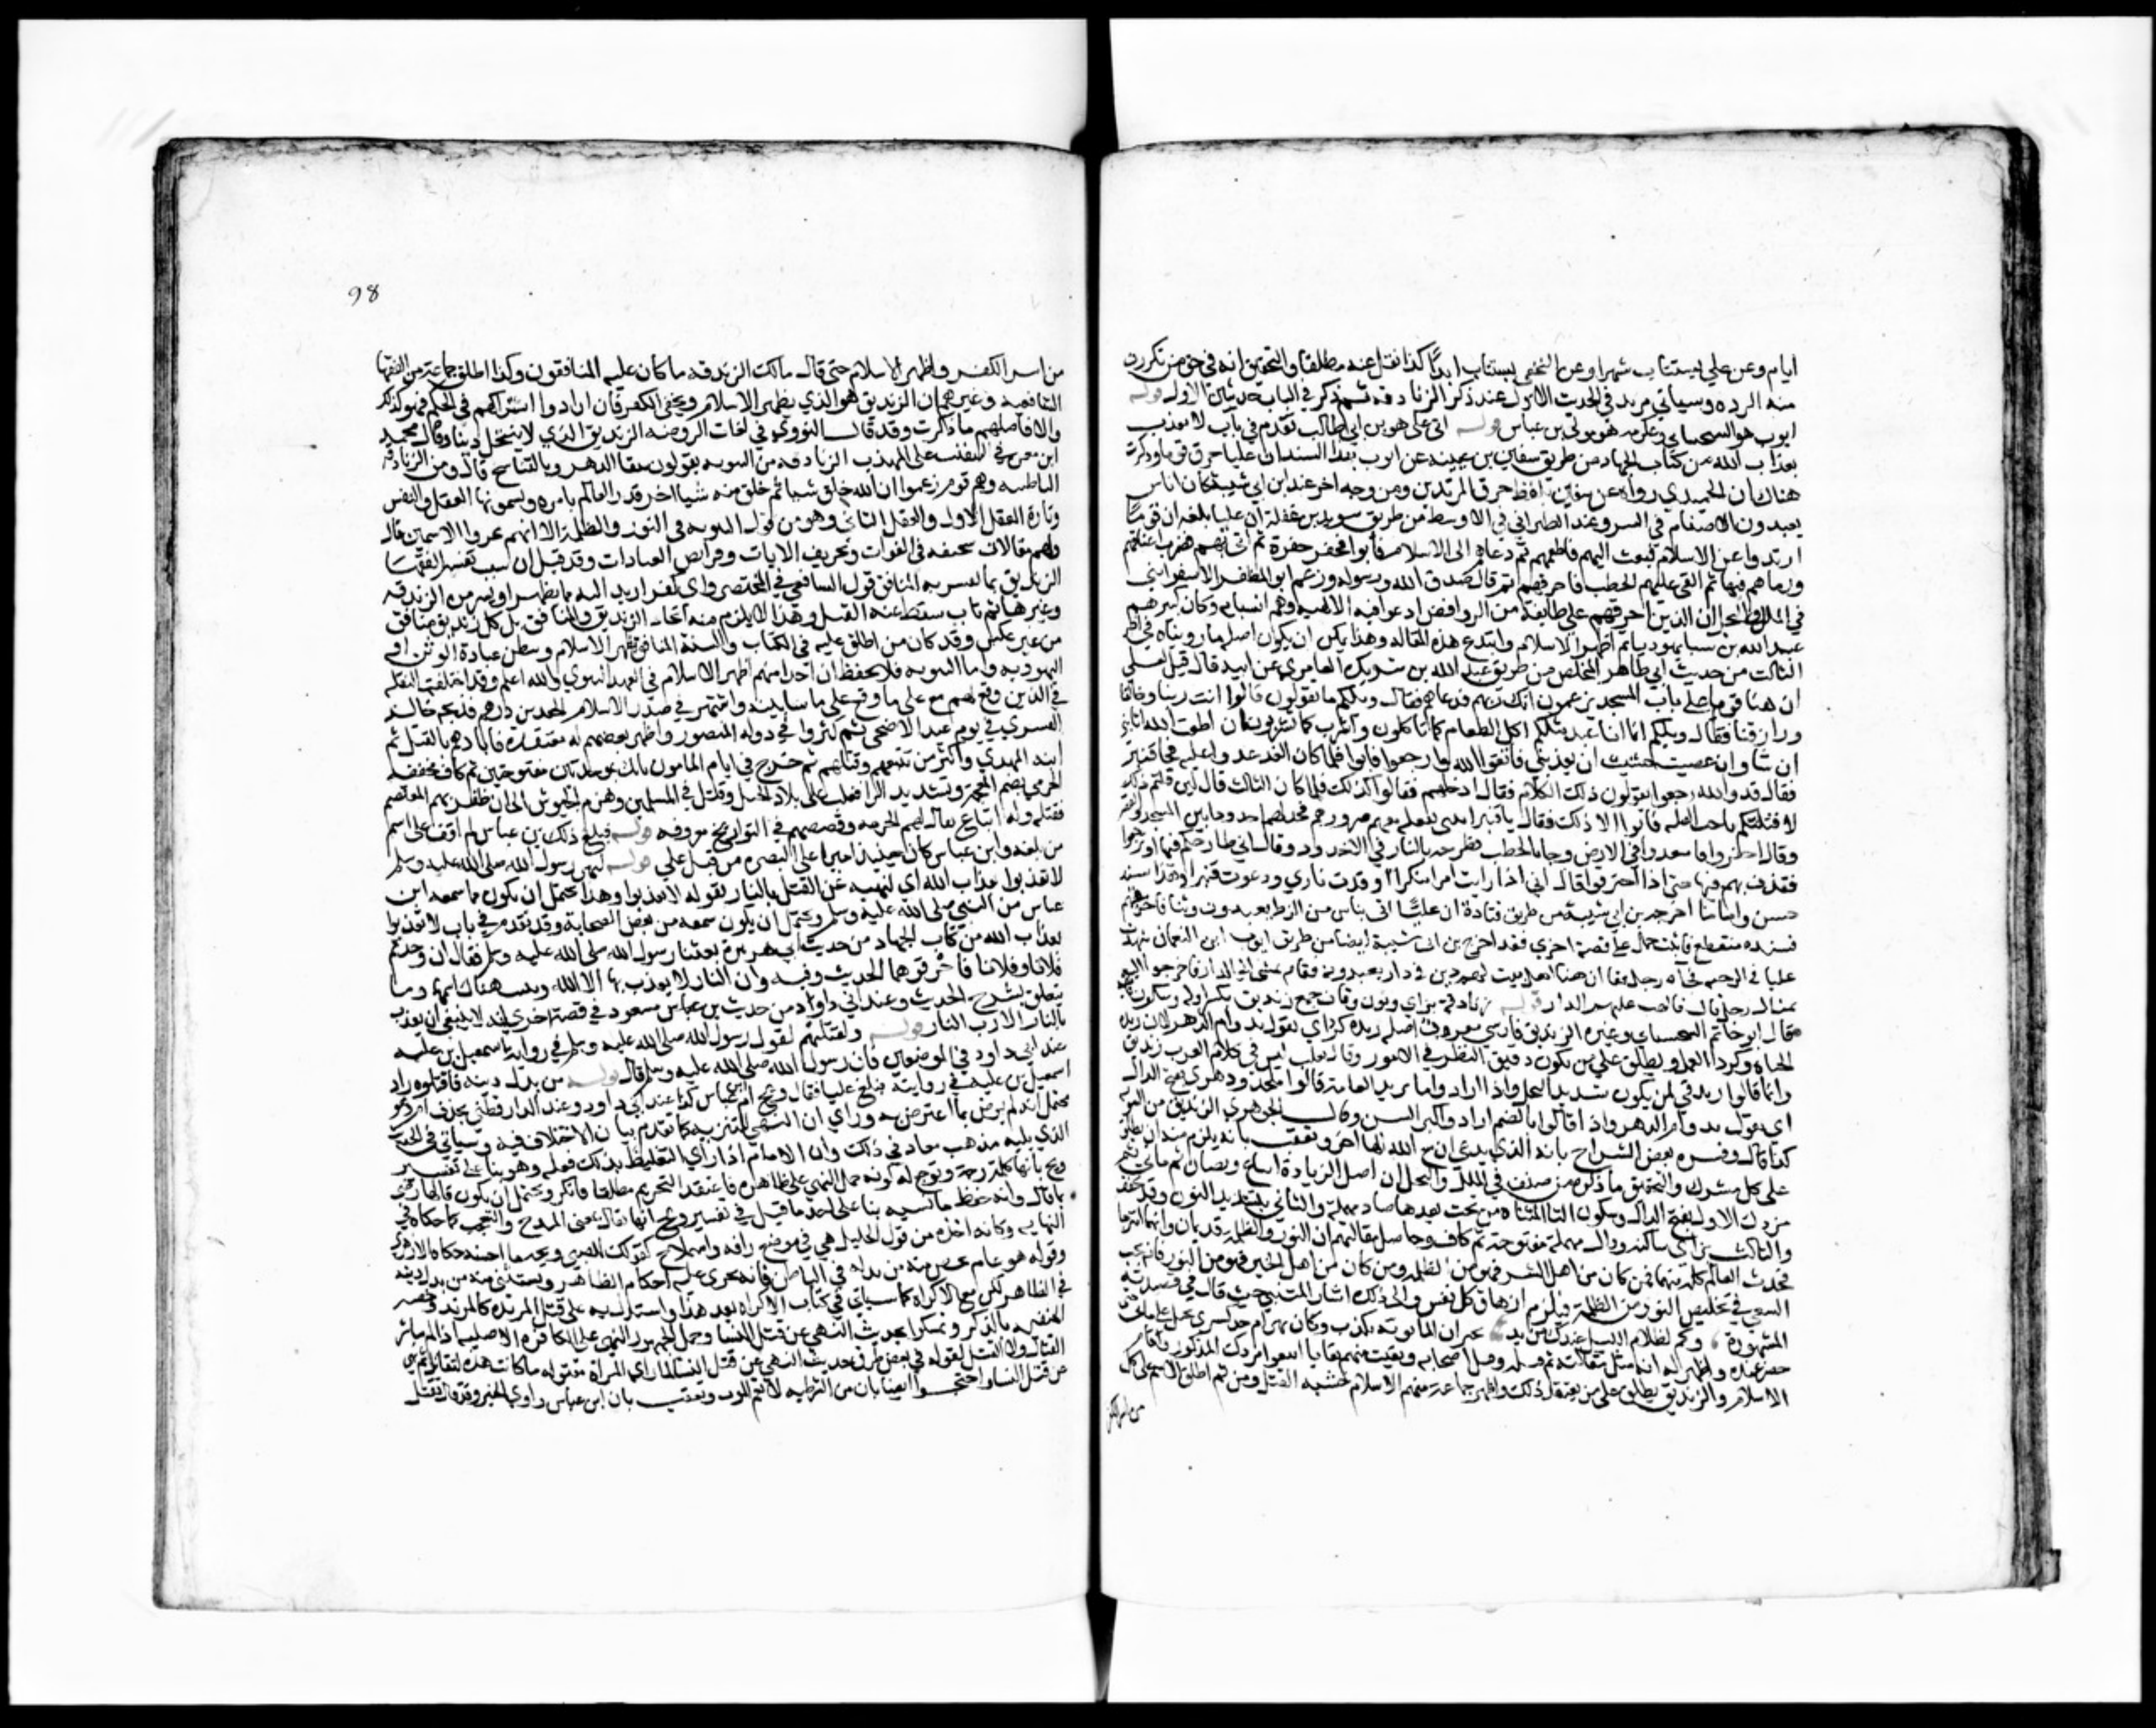 ايام وعن علي يستتاب شهرا وعن النخعي يستتاب ابدا كذا نقل عنه مطلقا والتحقيق انه في حق من تكررت
منه الرده وسياتي مزيد في الحديث الاول عند ذكر الزنادقه ثم ذكر في الباب حديثين الاول قوله
ايوب هو السختياني وعكرمه هو مولى بن عباس قوله اتى علي هو بن ابي طالب تقدم في باب لا يعذب
بعذاب الله من كتاب الجهاد من طريق سفيان بن عيينه عن ايوب بهذا السند ان عليا حرق قوما وذكرت
هناك ان الحميدي رواه عن سفين بلفظ حرق المرتدين ومن وجه اخر عند ابن ابي شيبة كان اناس
يعبدون الاصنام في السر وعند الطبراني في الاوسط من طريق سويد بن غفلة ان عليا بلغه ان قوما
ارتدوا عن الاسلام فبعث اليهم فاطعمهم ثم دعاهم الى الاسلام فأبوا فحفر حفرة ثم اتى بهم فضرب اعناقهم
ورماهم فيها ثم القى عليهم الحطب فاحرقهم ثم قال صدق الله ورسوله وزعم ابو المظفر الاسفرايني
في الملل والنحل ان الذين احرقهم علي طائفة من الروافض ادعوا فيه الالهيه وهم السبايه وكان كبيرهم
عبد الله بن سبا يهوديا ثم اظهر الاسلام وابتدع هذه المقاله وهذا يمكن ان يكون اصله ما رويناه في الجزء
الثالث من حديث ابي طاهر المخلص من طريق عبد الله بن شريك العامري عن ابيه قال قيل لعلي
ان هنا قوما على باب المسجد يزعمون انك ربهم فدعاهم فقال ويلكم ما تقولون قالوا انت ربنا وخالقنا
ورازقنا فقال ويلكم انما انا عبد مثلكم اكل الطعام كما تاكلون واشرب كما تشربون ان اطعت الله اثابني
ان شا وان عصيت خشيت ان يعذبني فاتقوا الله وارجعوا فابوا فلما كان الغد غدوا عليه فجا قنبر
فقال قد والله رجعوا يقولون ذلك الكلام فقال ادخلهم فقالوا كذلك فلما كان الثالث قال لين قلتم ذلك
لاقتلنكم باخبث قتله فابوا الا ذلك فقال يا قنبر
وقال احفروا فابعدوا في الارض وجا بالحطب فطرحه بالنار في الاخدود وقال اني طارحكم فيها او ترجعوا
فقذف بهم فيها حتى اذا احترقوا قال اني اذا رايت امرا منكرا اوقدت ناري ودعوت قنبرا وهذا سند
حسن واما ما اخرجه بن ابي شيبة من طريق قتادة ان عليا اتى بناس من الزط يعبدون وثنا فاحرقهم
فسنده منقطع فان ثبت حمل على قصة اخرى فقد اخرج بن ابي شيبة ايضا من طريق ايوب ابن النعمان شهدت
عليا في الرحبه فجاه رجل فقال ان هنا اهل بيت لهم وثن في دار يعبدونه فقام يمشي الى الدار فاخرجوا اليه
بمثال رجل قال فالهب عليهم الدار قوله بزنادقة بزاي ونون وقاف جمع زنديق بكسر اوله وسكون ثانيه
قال ابو حاتم السجستاني وغيره الزنديق فارسي معرب اصله زنده كرداي يقول بدوام الدهر لان زنده
الحياه وكرد العمل ويطلق على من يكون دقيق النظر في الامور وقال ثعلب ليس في كلام العرب زنديق
وانما قالوا زندقي لمن يكون شديد البخل واذا ارادوا ما تريد العامة قالوا ملحد ودهري بفتح الدال
اي يقول بدوام الدهر واذا قالوا بالضم ارادوا كبر السن وقال الجوهري الزنديق من الثنويه
كذا قال وفسره بعض الشراح بانه الذي يدعي ان مع الله الها اخر وتعقب بانه يلزم منه ان يطلق
على كل مشرك والتحقيق ما ذكره من صنف في الملل والنحل ان اصل الزنادقة اتباع ديصان ثم ماني ثم
مزدك الاول بفتح الدال وسكون التا المثناه من تحت بعدها صاد مهملة والثاني بتشديد النون وقد تخفف
والثالث بزاي ساكنه ودال مهملة مفتوحة ثم كاف وحاصل مقالتهم ان النور والظلمه قديمان وانهما امتزجا
فحدث العالم كله منهما فمن كان من اهل الشر فهو من الظلمه ومن كان من اهل الخير فهو من النور فانه يجب
السعي في تخليص النور من الظلمة فيلزم ازهاق كل نفس والى ذلك اشار المتنبي حيث قال في قصيدته
المشهورة وكم لظلام الليل عندك من يد تخبر ان المانويه تكذب وكان بهرام جد كسرى تحيل على ماني حتى
حضر عنده واظهر له انه قبل مقالته ثم قتله وقتل اصحابه وبقيت منهم بقايا اتبعوا مزدك المذكور وقام
الاسلام والزنديق يطلق على من يعتقد ذلك واظهر جماعة منهم الاسلام خشيه القتل ومن ثم اطلق الاسم على كل
من اسر الكفر
98
من اسر الكفر واظهر الاسلام حتى قال مالك الزندقه ما كان عليه المنافقون وكذا اطلق جماعة من الفقها
الشافعيه وغيرهم ان الزنديق هو الذي يظهر الاسلام ويخفي الكفر فان ارادوا اشتراكهم في الحكم فهو كذلك
والا فاصلهم ما ذكرت وقد قال النووي في لغات الروضه الزنديق الذي لا ينتحل دينا وقال محمد
ابن معن في التنقيب على المهذب الزنادقه من الثنويه يقولون ببقا الدهر وبالتناسخ قال ومن الزنادقه
الباطنيه وهم قوم زعموا ان الله خلق شيا ثم خلق منه شيا اخر فدبر العالم باسره ويسمونها العقل والنفس
وتارة العقل الاول والعقل الثاني وهو من قول الثنويه في النور والظلمة الا انهم غيروا الاسمين قال
ولهم مقالات سخيفه في النبوات وتحريف الايات وفرايض العبادات وقد قيل ان سبب تفسير الفقها
الزنديق بما يفسر به المنافق قول الشافعي في المختصر واي كفر ارتد اليه مما يظهر او يسر من الزندقه
وغيرها ثم تاب سقط عنه القتل وهذا لا يلزم منه اتحاد الزنديق والمنافق بل كل زنديق منافق
من غير عكس وقد كان من اطلق عليه في الكتاب والسنة المنافق يظهر الاسلام ويبطن عبادة الوثن او
اليهوديه واما الثنويه فلا يحفظ ان احدا منهم اظهر الاسلام في العهد النبوي والله اعلم وقد اختلف النقله
في الذين وقع لهم مع علي ما وقع على ما سابينه واشتهر في صدر الاسلام الجعد بن درهم فذبحه خالد
القسري في يوم عيد الاضحى ثم كثروا في دوله المنصور واظهر له بعضهم معتقده فابادهم بالقتل ثم
ابنه المهدي فاكثر من تتبعهم وقتلهم ثم خرج في ايام المامون بابك بموحدتين مفتوحتين ثم كاف مخففه
الخرمي بضم المعجمه وتشديد الرا فغلب على بلاد الجبل وقتل في المسلمين وهزم الجيوش الى ان ظفر بهم المعتصم
فقتله وله اتباع يقال لهم الخرميه وقصصهم في التواريخ معروفه قوله فبلغ ذلك بن عباس لم اقف على اسم
من بلغه وابن عباس كان حينيذ اميرا على البصره من قبل علي قوله لنهي رسول الله صلى الله عليه وسلم
لا تعذبوا بعذاب الله اي لنهيه عن القتل بالنار لقوله لا تعذبوا وهذا يحتمل ان يكون ما سمعه ابن
عباس من النبي صلى الله عليه وسلم ويحتمل ان يكون سمعه من بعض الصحابة وقد تقدم في باب لا تعذبوا
بعذاب الله من كتاب الجهاد من حديث ابي هريرة بعثنا رسول الله صلى الله عليه وسلم فقال ان وجدتم
فلانا وفلانا فاحرقوهما الحديث وفيه وان النار لا يعذب بها الا الله وبينت هناك اسمهما وما
يتعلق بشرح الحديث وعند ابي داود من حديث بن مسعود في قصة اخرى انه لا ينبغي ان يعذب
بالنار الا رب النار قوله ولقتلتهم لقول رسول الله صلى الله عليه وسلم في رواية اسمعيل بن عليه
عند ابي داود في الموضعين فان رسول الله صلى الله عليه وسلم قال قوله من بدل دينه فاقتلوه زاد
اسمعيل بن عليه في روايته فبلغ عليا فقال ويح ام بن عباس كذا عند ابي داود وعند الدارقطني بحذف ام وهو
محتمل انه لم يرض بما اعترض به وراى ان النهي للتنزيه كما تقدم بيان الاختلاف فيه وسياتي في الحديث
الذي يليه مذهب معاذ في ذلك وان الامام اذا راى التغليظ بذلك فعله وهو بنا على تفسير
ويح بانها كلمة رحمة وتوجع له كونه حمل النهي على ظاهره فاعتقد التحريم مطلقا فانكر ويحتمل ان يكون قالها رضى
بما قال وانه حفظ ما نسيه بنا على احد ما قيل في تفسير ويح انها تقال بمعنى المدح والتعجب كما حكاه في
النهايه وكانه اخذه من قول الخليل هي في موضع رافه واستملاح كقولك للصبي ويحه ما احسنه حكاه الازهري
وقوله هو عام تخص منه من بدله في الباطن فانه تجري عليه احكام الظاهر ويستثنى منه من بدل دينه
في الظاهر لكن مع الاكراه كما سياتي في كتاب الاكراه بعد هذا واستدل به على قتل المرتده كالمرتد وخصه
الحنفيه بالذكر وتمسكوا بحديث النهي عن قتل النسا وحمل الجمهور النهي على الكافره الاصليه اذا لم تباشر
القتال ولا القتل لقوله في بعض طرق حديث النهي عن قتل النسا لما راى المراة مقتوله ما كانت هذه لتقاتل ثم نهى
عن قتل النسا واحتجوا ايضا بان من الشرطيه لا تعم المونث وتعقب بان ابن عباس راوي الخبر وقد قال تقتل